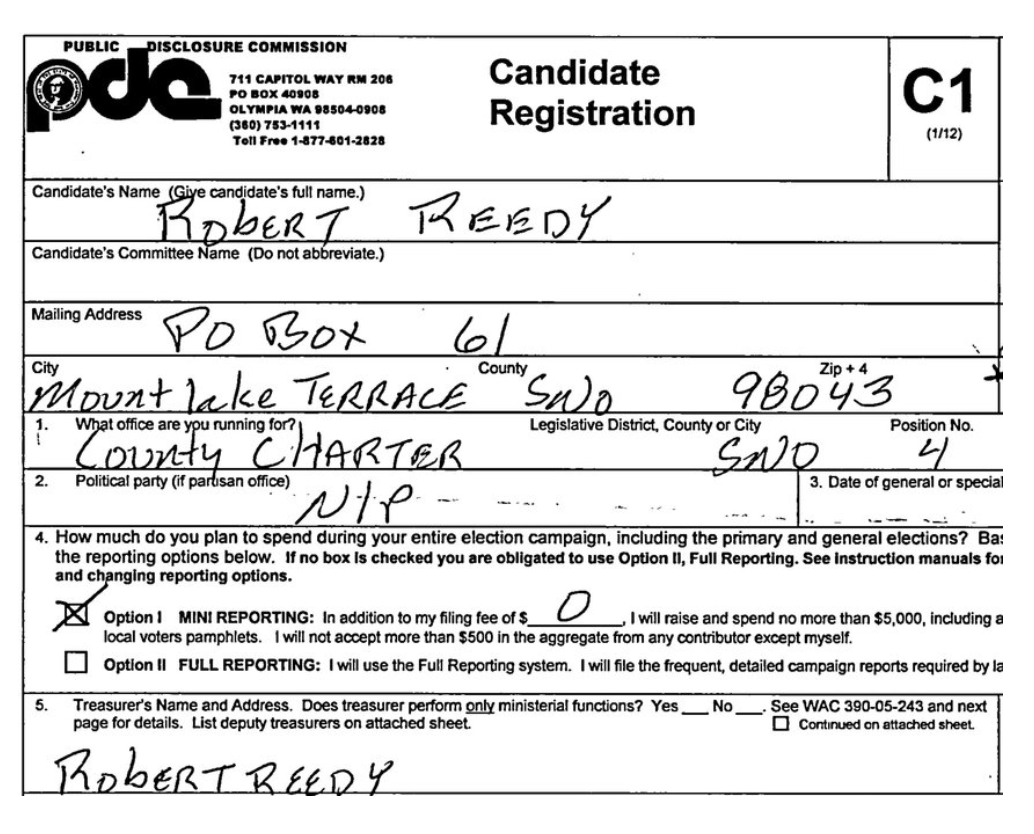 PUBLIC DISCLOSURE COMMISSION
pdc
711 CAPITOL WAY RM 206
PO BOX 40908
OLYMPIA WA 98504-0908
(360) 753-1111
Toll Free 1-877-601-2828
Candidate
Registration
C1
(1/12)
Candidate's Name (Give candidate's full name.)
Robert Reedy
Candidate's Committee Name (Do not abbreviate.)
Mailing Address
PO Box 61
City County Zip + 4
Mountlake Terrace Sno 98043
1. What office are you running for? Legislative District, County or City Position No.
County Charter Sno 4
2. Political party (if partisan office) 3. Date of general or special
N/P
4. How much do you plan to spend during your entire election campaign, including the primary and general elections? Bas
the reporting options below. If no box is checked you are obligated to use Option II, Full Reporting. See instruction manuals for
and changing reporting options.
Option I MINI REPORTING: In addition to my filing fee of $ 0 , I will raise and spend no more than $5,000, including a
local voters pamphlets. I will not accept more than $500 in the aggregate from any contributor except myself.
Option II FULL REPORTING: I will use the Full Reporting system. I will file the frequent, detailed campaign reports required by la
5. Treasurer's Name and Address. Does treasurer perform only ministerial functions? Yes ___ No ___. See WAC 390-05-243 and next
page for details. List deputy treasurers on attached sheet. Continued on attached sheet.
Robert Reedy